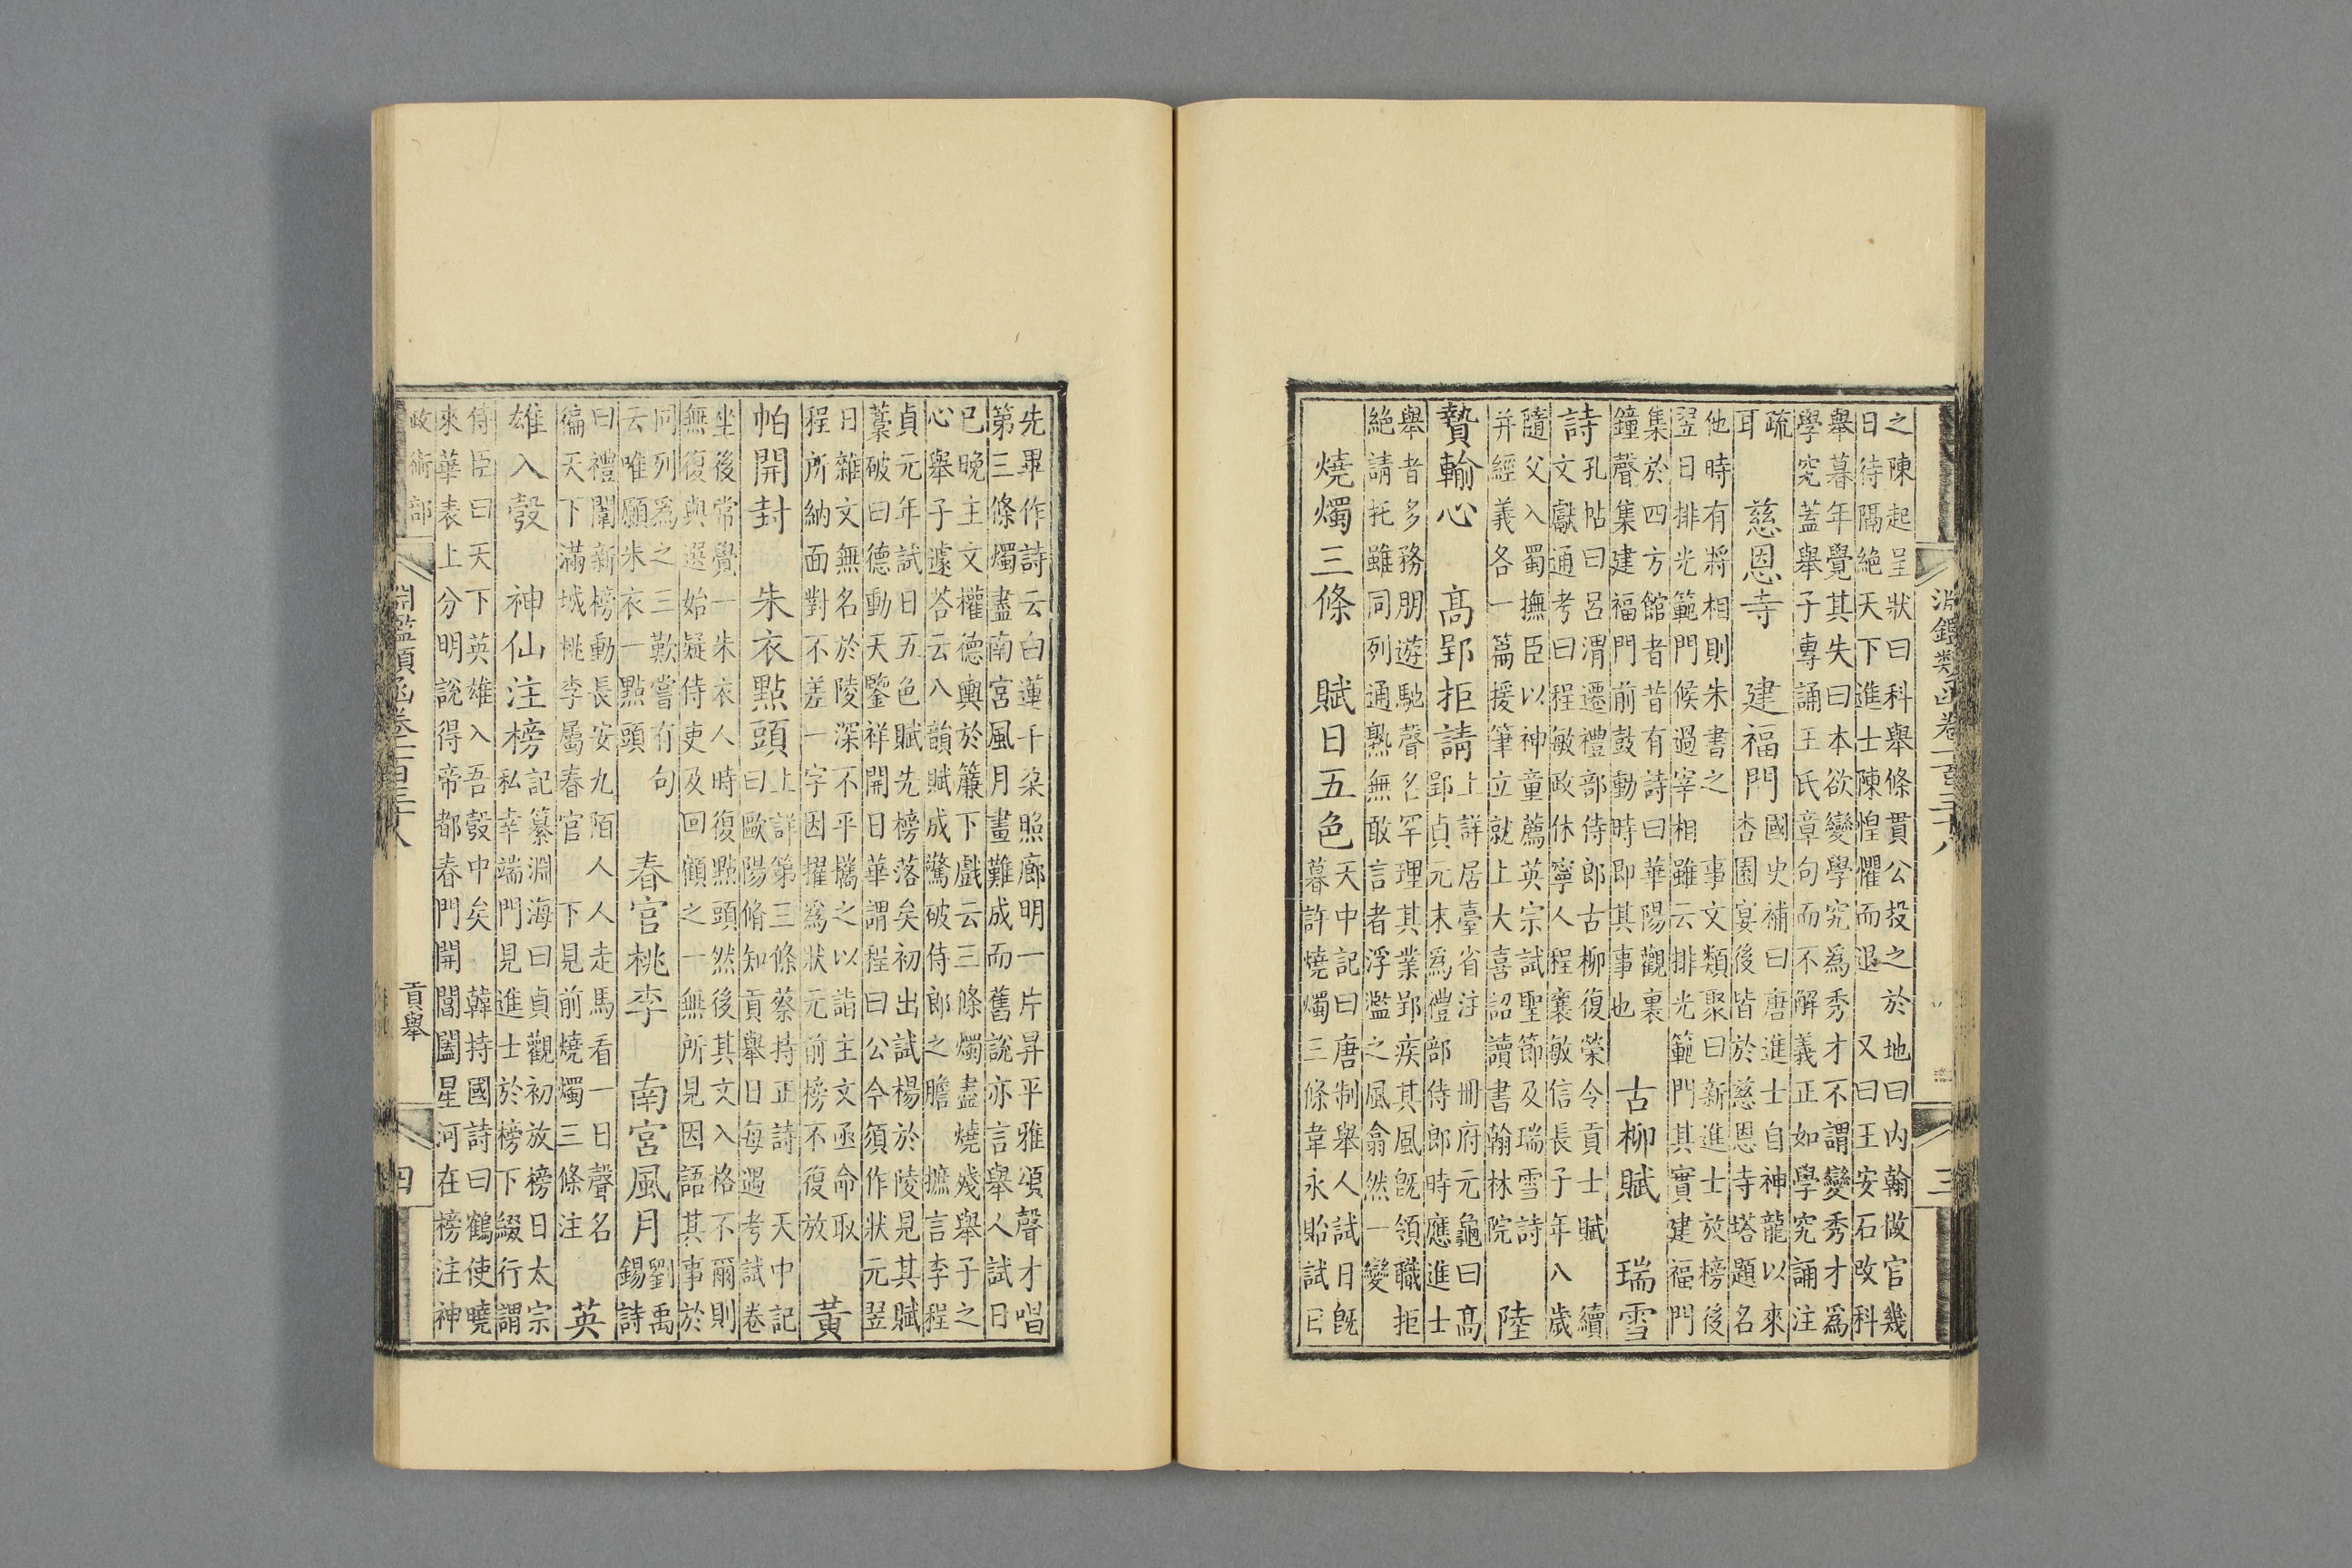 淵鑑類函卷一百三十八　三
之陳起呈狀曰科舉條貫公投之於地曰内翰做官幾
日待隔絶天下進士陳惶懼而退　又曰王安石改科
舉暮年覺其失曰本欲變學究爲秀才不謂變秀才爲
學究蓋舉子專誦王氏章句而不解義正如學究誦注
疏
耳
慈恩寺　建福門
國史補曰唐進士自神龍以來
杏園宴後皆於慈恩寺塔題名
他時有將相則朱書之　事文類聚曰新進士於榜後
翌日排光範門候過宰相雖云排光範門其實建福門
集於四方館者昔有詩曰華陽觀裏
鐘聲集建福門前鼓動時即其事也
古柳賦　瑞雪
詩
孔帖曰呂渭遷禮部侍郎古柳復榮令貢士賦　續
文獻通考曰程敏政休寧人程襄敏信長子年八歲
隨父入蜀撫臣以神童薦英宗試聖節及瑞雪詩
并經義各一篇援筆立就上大喜詔讀書翰林院
陸
贄輸心　高郢拒請
上詳居臺省注　冊府元龜曰高
郢貞元末爲禮部侍郎時應進士
舉者多務朋遊馳聲名罕理其業郢疾其風既領職拒
絶請托雖同列通熟無敢言者浮濫之風翕然一變
燒燭三條　賦日五色
天中記曰唐制舉人試日既
暮許燒燭三條韋永貽試日
先畢作詩云白蓮千朶照廊明一片昇平雅頌聲才唱
第三條燭盡南宮風月畫難成而舊說亦言舉人試日
已晚主文權德輿於簾下戲云三條燭盡燒殘舉子之
心舉子遽荅云八韻賦成驚破侍郎之膽　摭言李程
貞元年試日五色賦先榜落矣初出試楊於陵見其賦
藁破曰德動天鑒祥開日華謂程曰公今須作狀元翌
日雜文無名於陵深不平攜之以詣主文亟命取
程所納面對不差一字因擢爲狀元前榜不復放
黃
帕開封　朱衣點頭
上詳第三條蔡持正詩　天中記
曰歐陽脩知貢舉日每遇考試卷
坐後常覺一朱衣人時復點頭然後其文入格不爾則
無復與選始疑侍吏及回顧之一無所見因語其事於
同列爲之三歎嘗有句
云唯願朱衣一點頭
春宮桃李　南宮風月
劉禹
錫詩
曰禮闈新榜動長安九陌人人走馬看一日聲名
徧天下滿城桃李屬春官　下見前燒燭三條注
英
雄入彀　神仙注榜
記纂淵海曰貞觀初放榜日太宗
私幸端門見進士於榜下綴行謂
侍臣曰天下英雄入吾彀中矣　韓持國詩曰鶴使曉
來華表上分明說得帝都春門開閶闔星河在榜注神
政術部　淵鑑類函卷一百三十八　貢舉　四